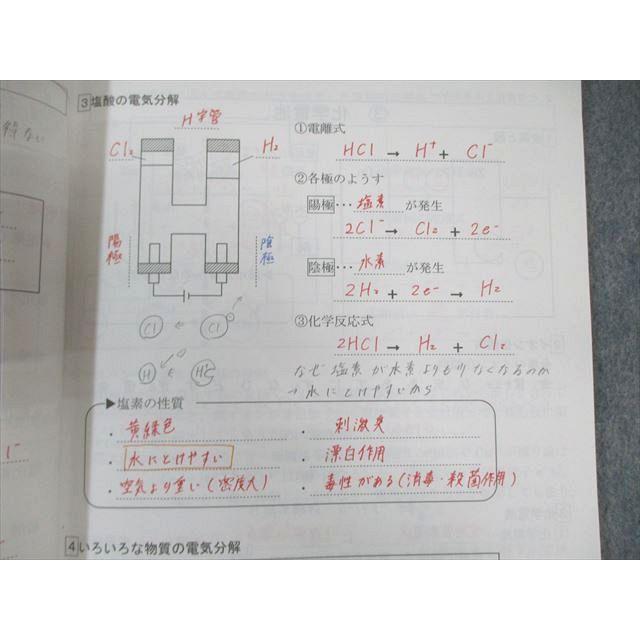 3 塩酸の電気分解
得ない
H字管
Cl₂
H₂
陽極
陰極
Cl
Cl
H
①電離式
HCl → H⁺ + Cl⁻
②各極のようす
陽極…塩素が発生
2Cl⁻ → Cl₂ + 2e⁻
陰極…水素が発生
2H₂ + 2e⁻ → H₂
③化学反応式
2HCl → H₂ + Cl₂
なぜ 塩素が水素よりも少なくなるのか
→水にとけやすいから
▶塩素の性質
・黄緑色
・刺激臭
・水にとけやすい
・漂白作用
・空気より重い(密度大)
・毒性がある(消毒・殺菌作用)
4 いろいろな物質の電気分解